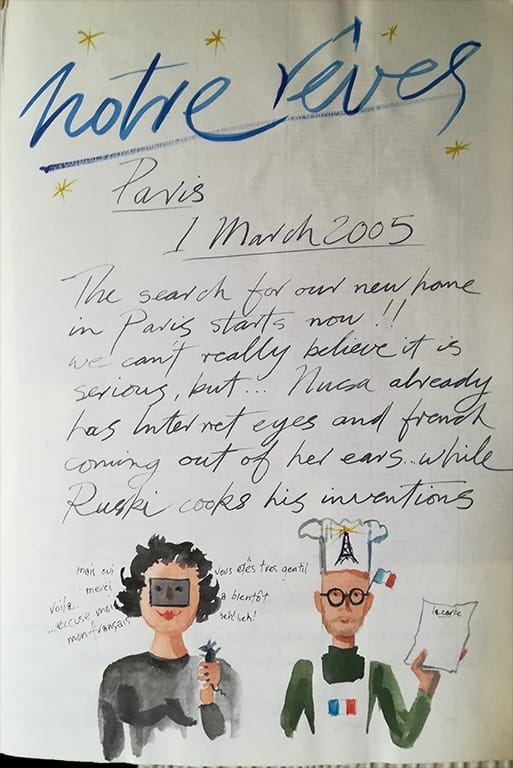 notre rêves
Paris
1 March 2005
The search for our new home
in Paris starts now !!
we can't really believe it is
serious, but... Nusa already
has Internet eyes and french
coming out of her ears.. while
Ruski cooks his inventions
mais oui
merci
voila..
...excuse moi
mon français
vous étês tres gentil
a bientôt
heh! heh!
la carte